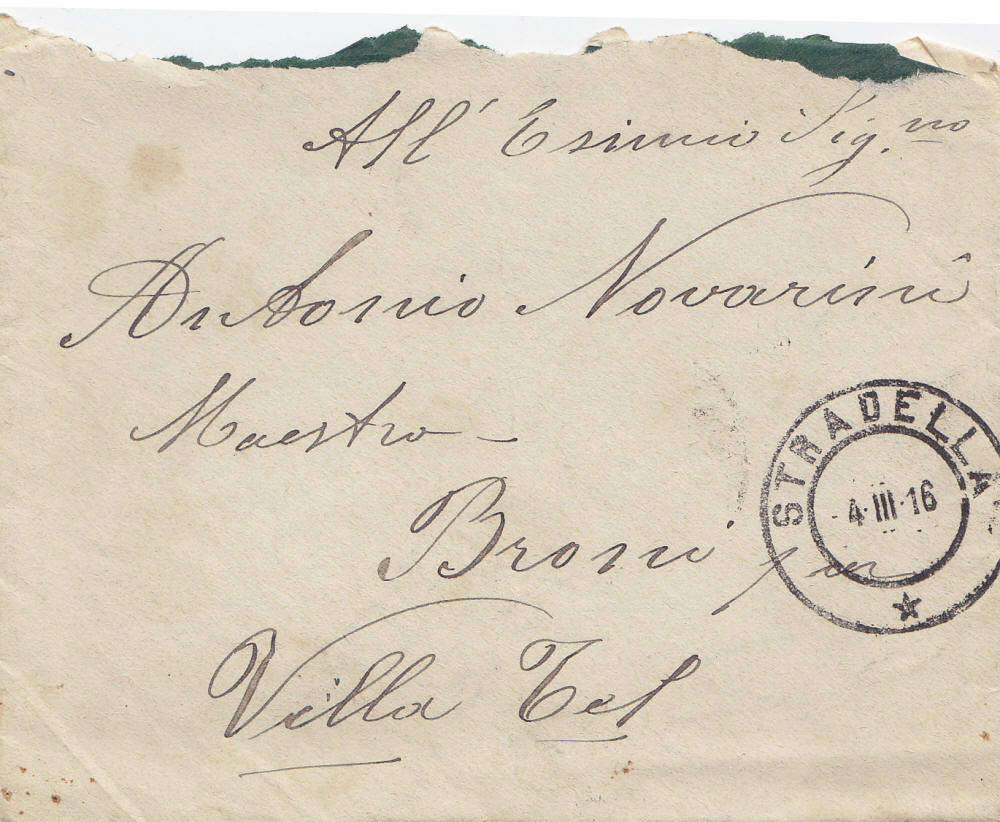 All' Esimio Sig.no
Antonio Novarini
Maestro -
STRADELLA
4·III·16
Broni per
Villa Tel